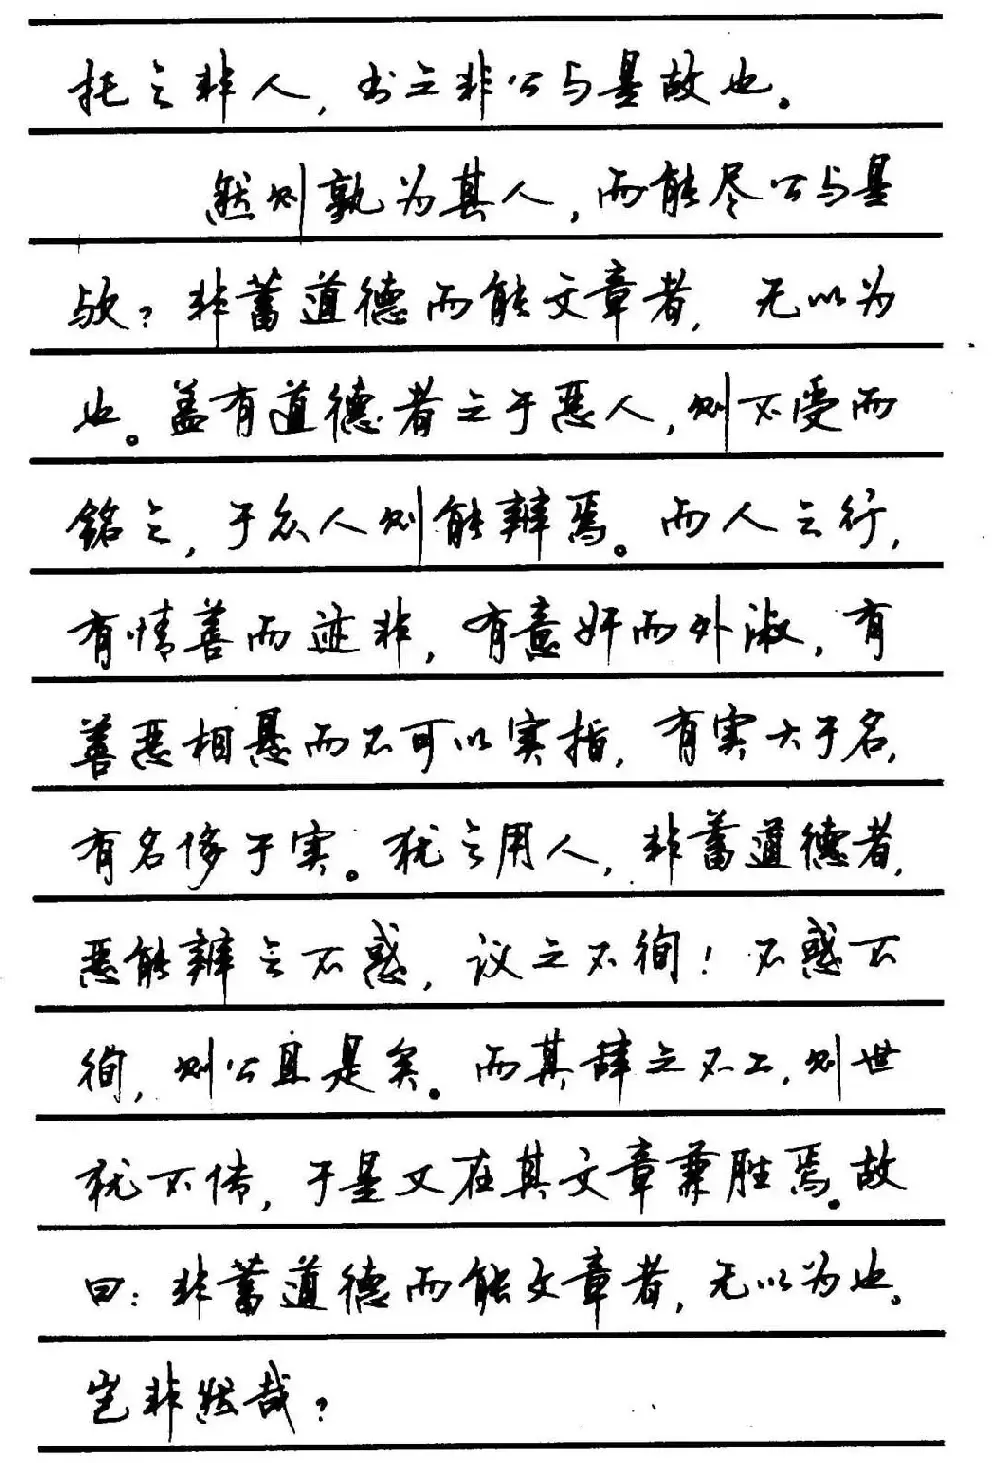 托之非人，书之非公与是故也。
然则孰为其人，而能尽公与是
欤？非蓄道德而能文章者，无以为
也。盖有道德者之于恶人，则不受而
铭之，于众人则能辨焉。而人之行，
有情善而迹非，有意奸而外淑，有
善恶相悬而不可以实指，有实大于名，
有名侈于实。犹之用人，非蓄道德者，
恶能辨之不惑，议之不徇！不惑不
徇，则公且是矣。而其辞之不工，则世
犹不传，于是又在其文章兼胜焉。故
曰：非蓄道德而能文章者，无以为也。
岂非然哉？